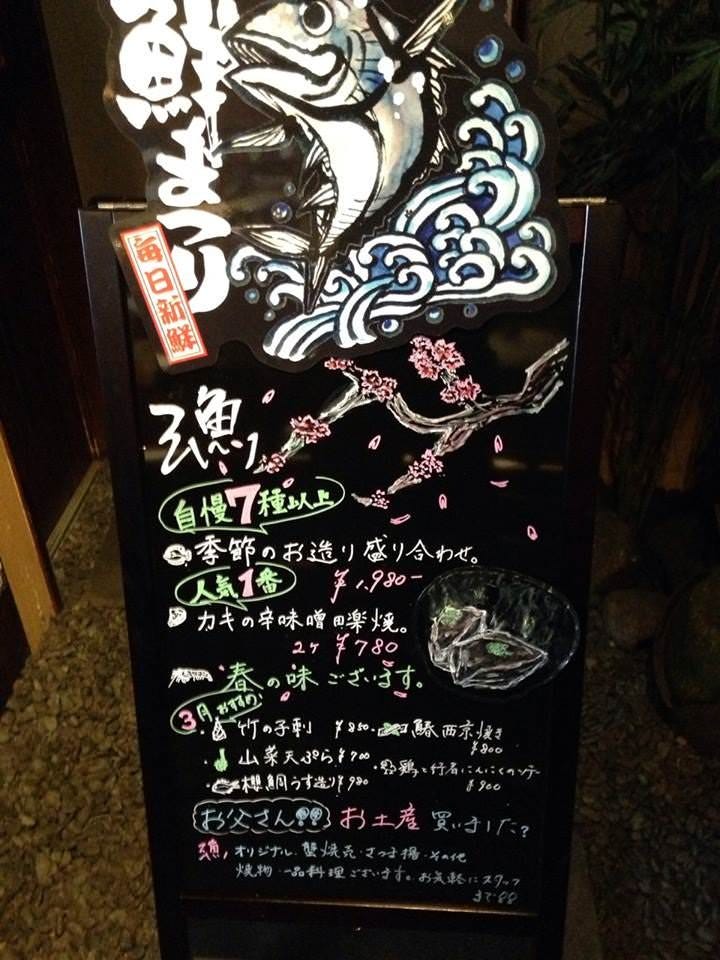 鮮まつり
毎日新鮮
漁り
自慢7種以上
季節のお造り盛り合わせ。
¥1,980-
人気1番
カキの辛味噌田楽焼。
2ケ ¥780
春の味ございます。
3月おすすめ
・竹の子刺 ¥850
・山菜天ぷら ¥700
・櫻鯛うす造り ¥980
・鰆西京焼き
¥800
鶏と行者にんにくのソテー
¥900
お父さん!! お土産 買いました?
オリジナル、蟹焼売・さつま揚・その他
焼物・一品料理ございます。お気軽にスタッフ
まで